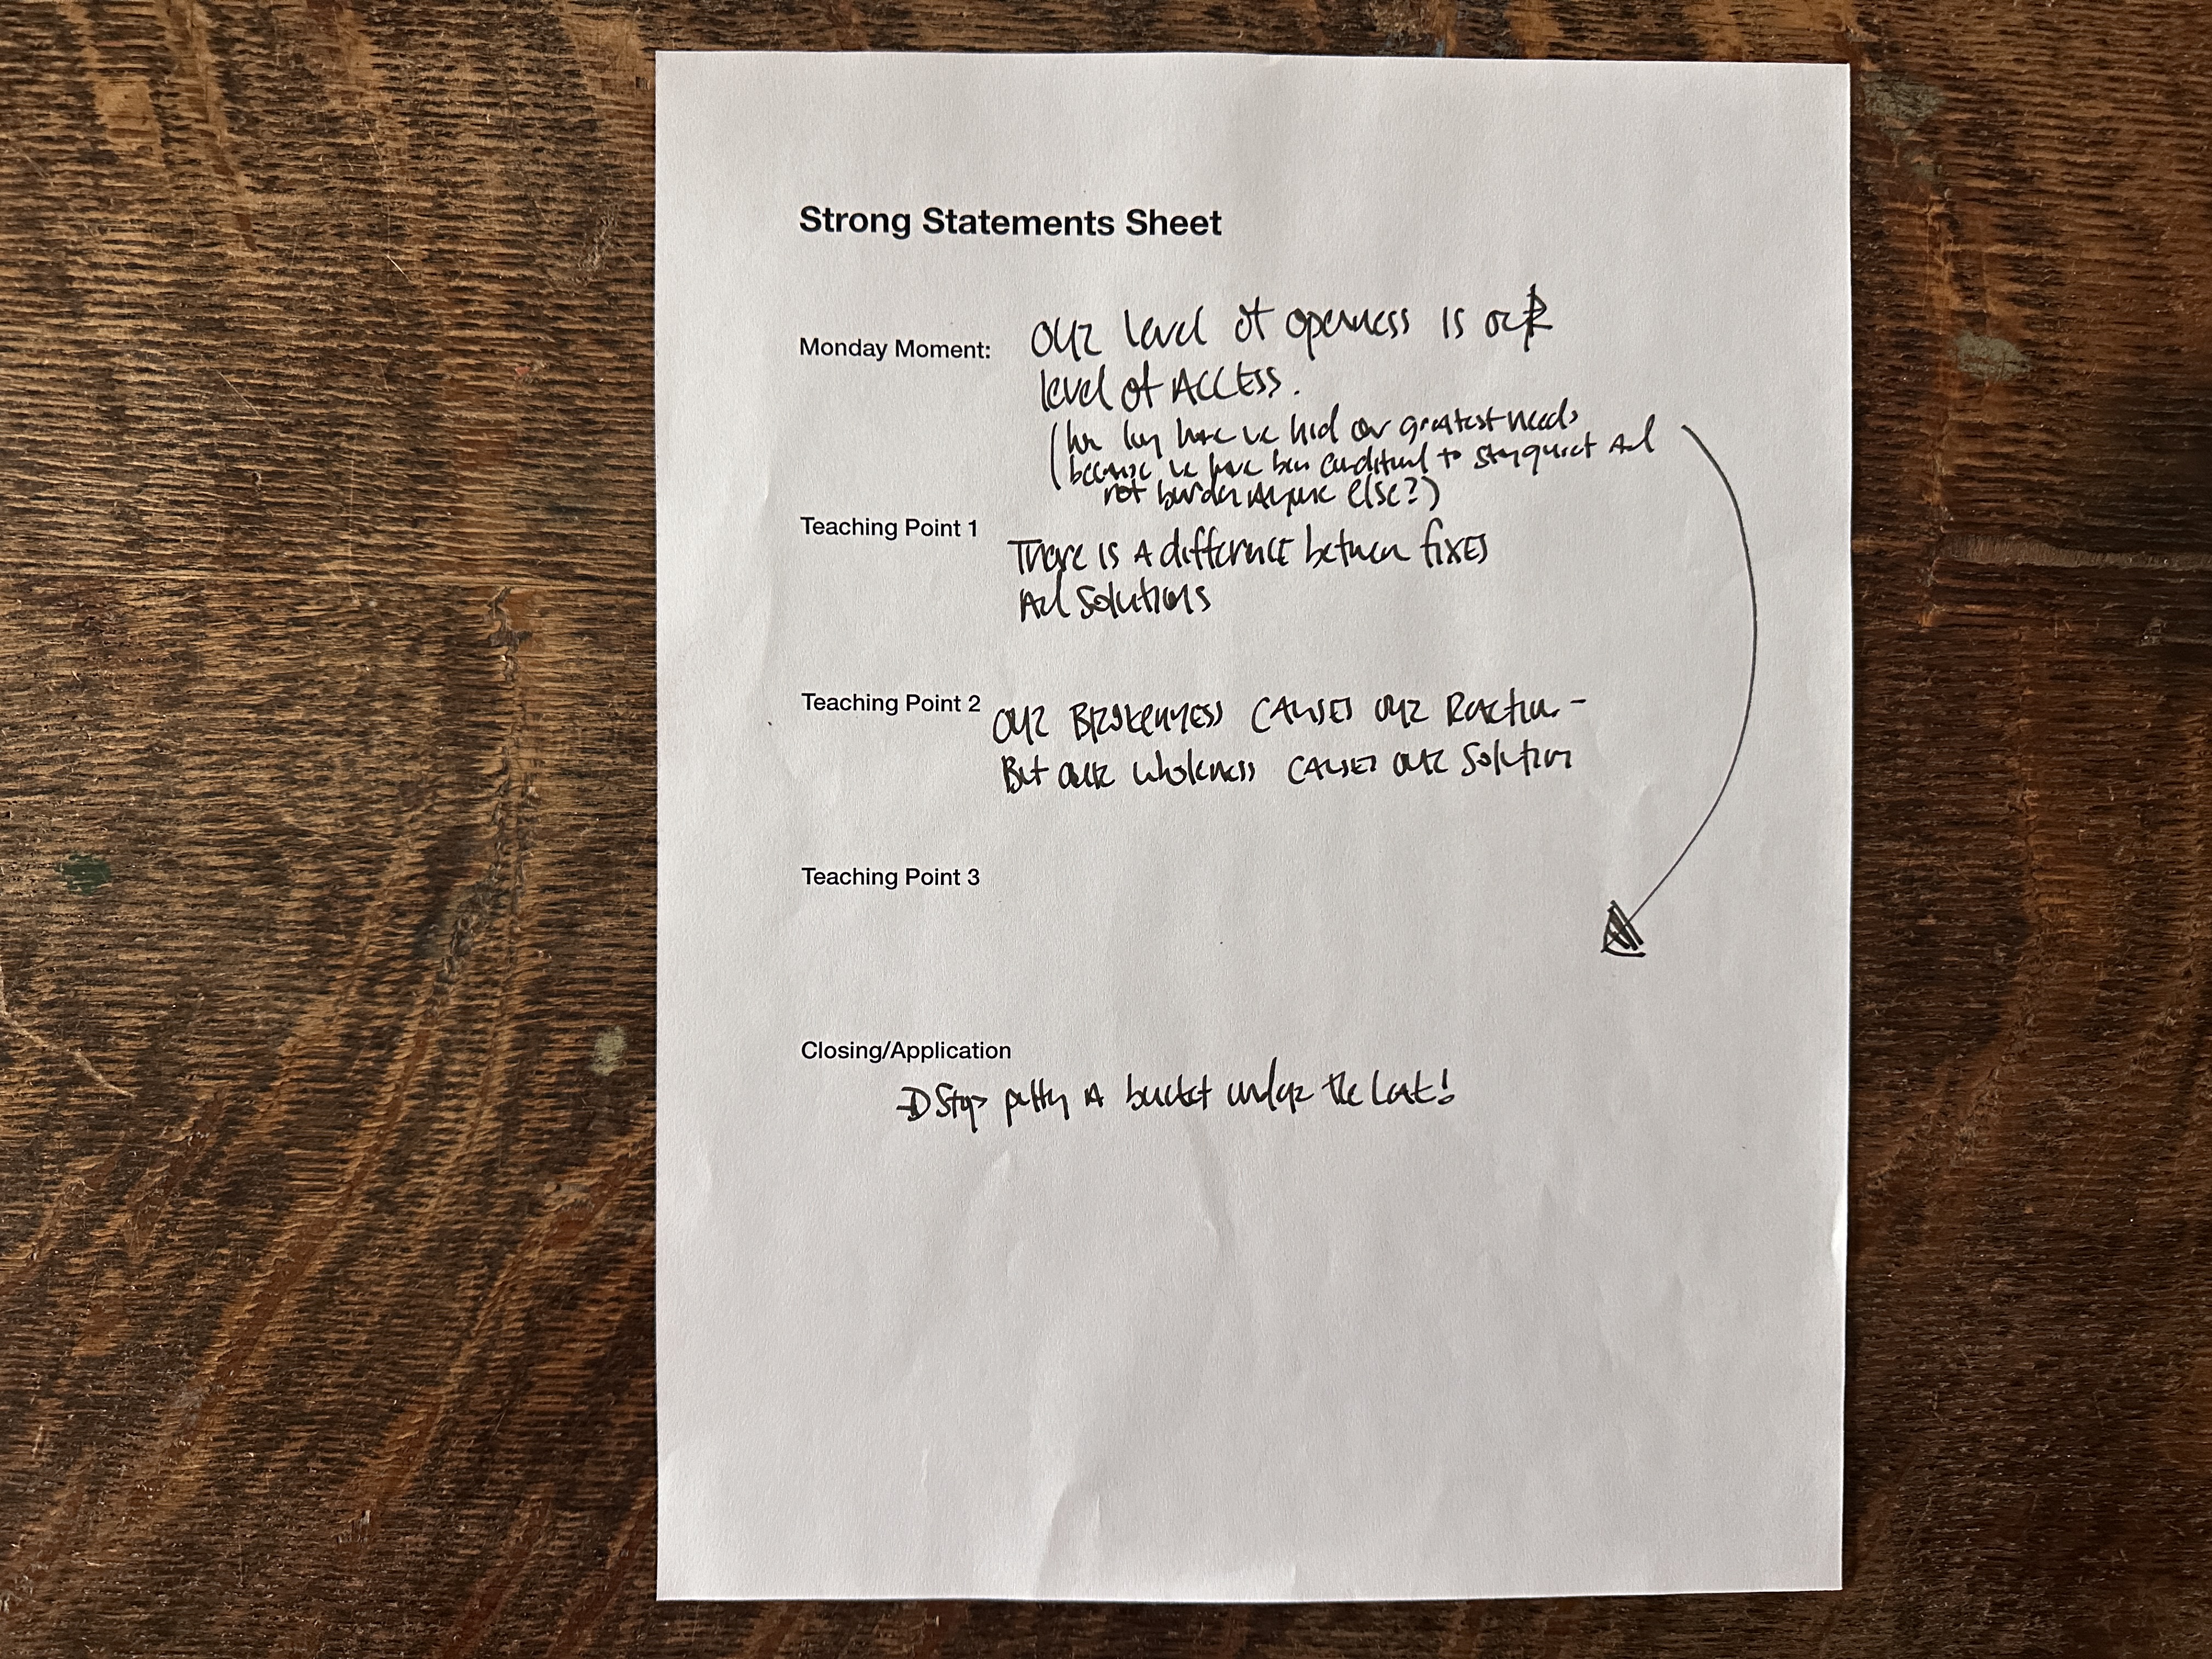 Strong Statements Sheet
Monday Moment: OUR level of openness is OUR
level of ACCESS.
(how long have we hid our greatest needs
because we have been conditioned to stay quiet and
not burden anyone else?)
Teaching Point 1 There is A difference between fixes
And Solutions
Teaching Point 2 OUR BROKENNESS CAUSES OUR Reaction -
But OUR wholeness CAUSES OUR Solution
Teaching Point 3
Closing/Application
Stop putting A bucket under the leak!